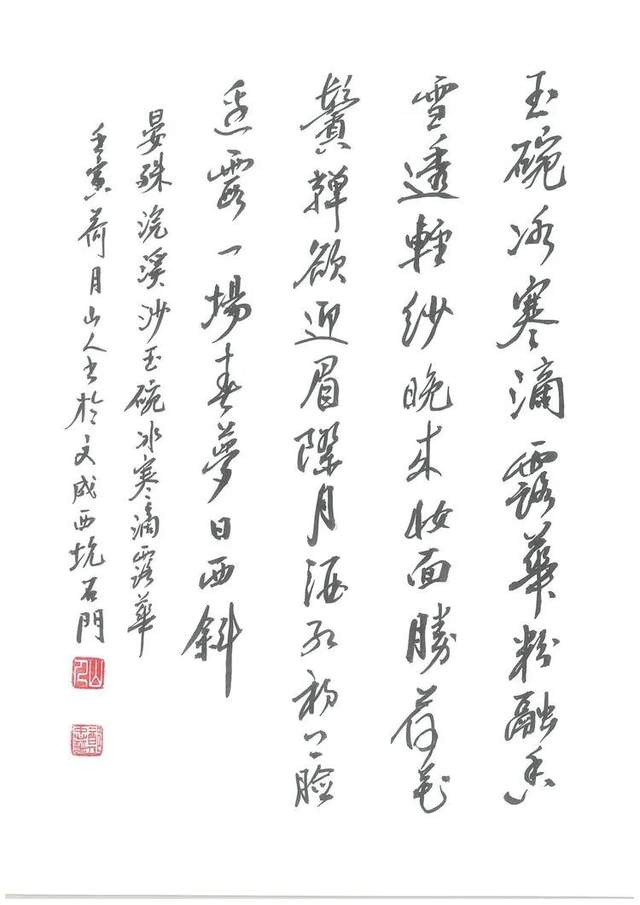 玉碗冰寒滴露華粉融香
雪透輕紗晚来妝面勝荷花
鬢嚲欲迎眉際月酒红初上脸
邊霞一場春夢日西斜
晏殊浣溪沙玉碗冰寒滴露華
壬寅荷月山人书於文成西坑石門
山人